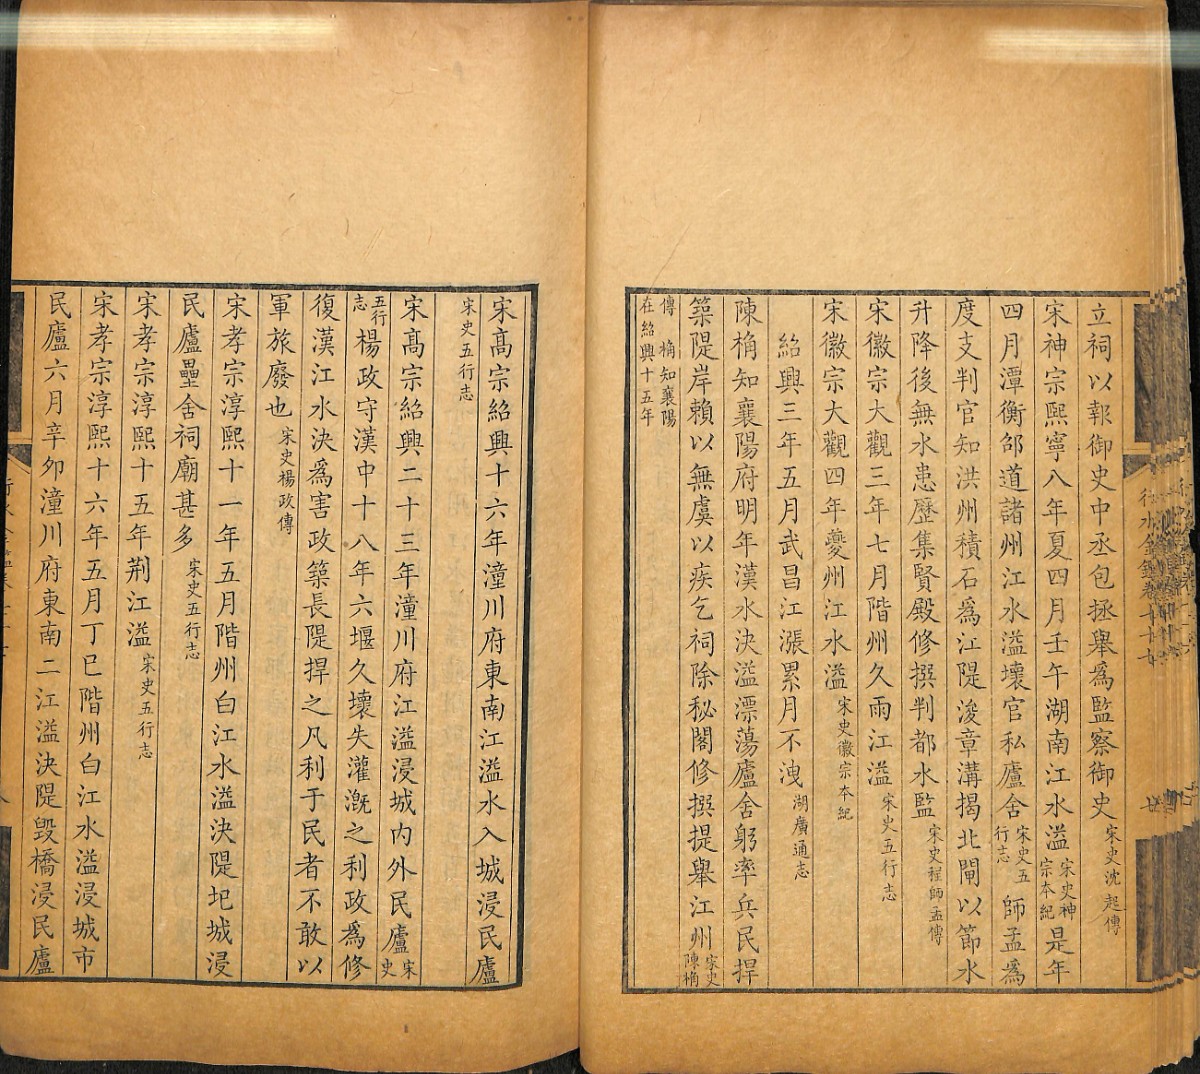 立祠以報御史中丞包拯舉爲監察御史宋史沈起傳
宋神宗熙寧八年夏四月壬午湖南江水溢宋史神宗本紀是年
四月潭衡邵道諸州江水溢壞官私廬舍宋史五行志師孟爲
度支判官知洪州積石爲江隄浚章溝揭北閘以節水
升降後無水患歷集賢殿修撰判都水監宋史程師孟傳
宋徽宗大觀三年七月階州久雨江溢宋史五行志
宋徽宗大觀四年夔州江水溢宋史徽宗本紀
紹興三年五月武昌江漲累月不洩湖廣通志
陳桷知襄陽府明年漢水決溢漂蕩廬舍躬率兵民捍
築隄岸賴以無虞以疾乞祠除秘閣修撰提舉江州宋史陳桷
傳桷知襄陽在紹興十五年
宋高宗紹興十六年潼川府東南江溢水入城浸民廬
宋史五行志
宋高宗紹興二十三年潼川府江溢浸城內外民廬宋史
五行志楊政守漢中十八年六堰久壞失灌漑之利政爲修
復漢江水決爲害政築長隄捍之凡利于民者不敢以
軍旅廢也宋史楊政傳
宋孝宗淳熙十一年五月階州白江水溢決隄圮城浸
民廬壘舍祠廟甚多宋史五行志
宋孝宗淳熙十五年荆江溢宋史五行志
宋孝宗淳熙十六年五月丁巳階州白江水溢浸城市
民廬六月辛卯潼川府東南二江溢決隄毁橋浸民廬